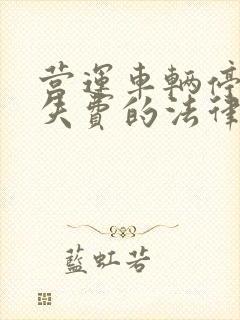 营运車輌停
失費的法律
藍虹若